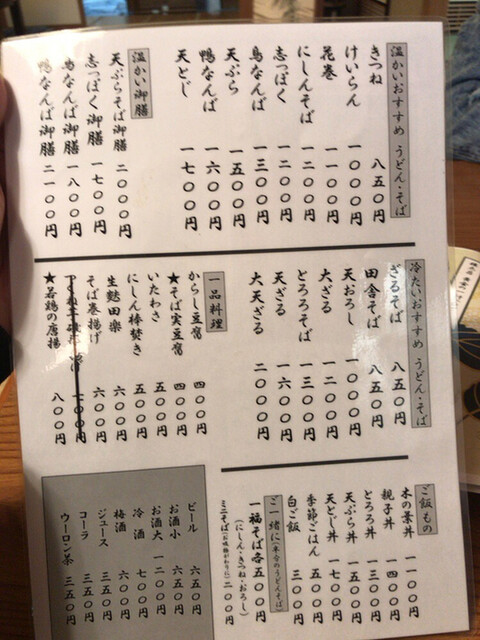 温かいおすすめ うどん・そば
きつね 八五〇円
けいらん 一〇〇〇円
花巻 一一〇〇円
にしんそば 一二〇〇円
志っぽく 一二〇〇円
鳥なんば 一三〇〇円
天ぷら 一五〇〇円
鴨なんば 一六〇〇円
天とじ 一七〇〇円
温かい御膳
天ぷらそば御膳 二〇〇〇円
志っぽく御膳 一七〇〇円
なんば御膳 一八〇〇円
鴨なんば御膳 二一〇〇円
冷たいおすすめ うどん・そば
ざるそば 八五〇円
田舎そば 八五〇円
天おろし 一〇〇〇円
大ざる 一二〇〇円
とろろそば 一三〇〇円
天ざる 一六〇〇円
大天ざる 二〇〇〇円
一品料理
からし豆腐 四〇〇円
★そば実豆腐 四〇〇円
いたわさ 五〇〇円
にしん棒焚き 五〇〇円
生麩田楽 六〇〇円
そば巻揚げ 六〇〇円
★若鶏の唐揚 八〇〇円
ご飯もの
木の葉丼 一一〇〇円
親子丼 一四〇〇円
とろろ丼 一三〇〇円
天ぷら丼 一五〇〇円
天とじ丼 一七〇〇円
季節ごはん 五〇〇円
白ご飯 三〇〇円
ご一緒に(半分のうどんそば)
一福そば各五〇〇円
(にしん・きつね・おろし)
ミニそば 二〇〇円
ビール 六五〇円
お酒小 六五〇円
お酒大 一二〇〇円
冷酒 七〇〇円
梅酒 六〇〇円
ジュース 三五〇円
コーラ 三五〇円
ウーロン茶 三五〇円